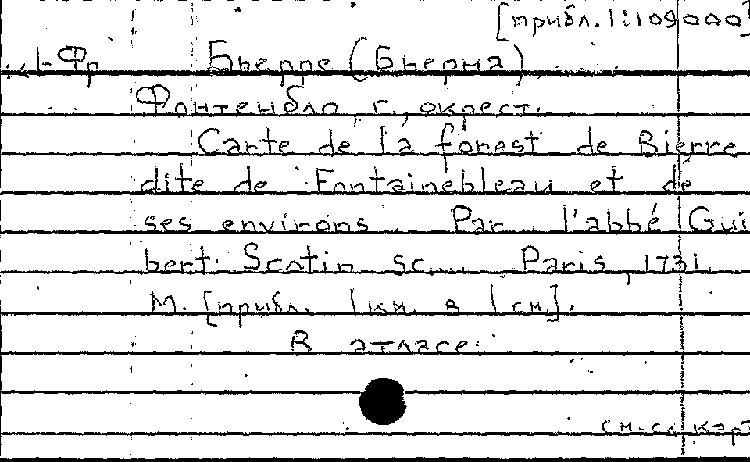 [прибл. 1:109000]
1-Фр Бьерре (Бьерна),
Фонтенбло, г., окрест.
Carte de la forest de Bierre
dite de Fontainebleau et de
ses environs. Par l'abbé Gui
bert. Scotin sc.... Paris, 1731.
М. [прибл. 1 км. в 1 см.].
В атласе:
см. сл. карт